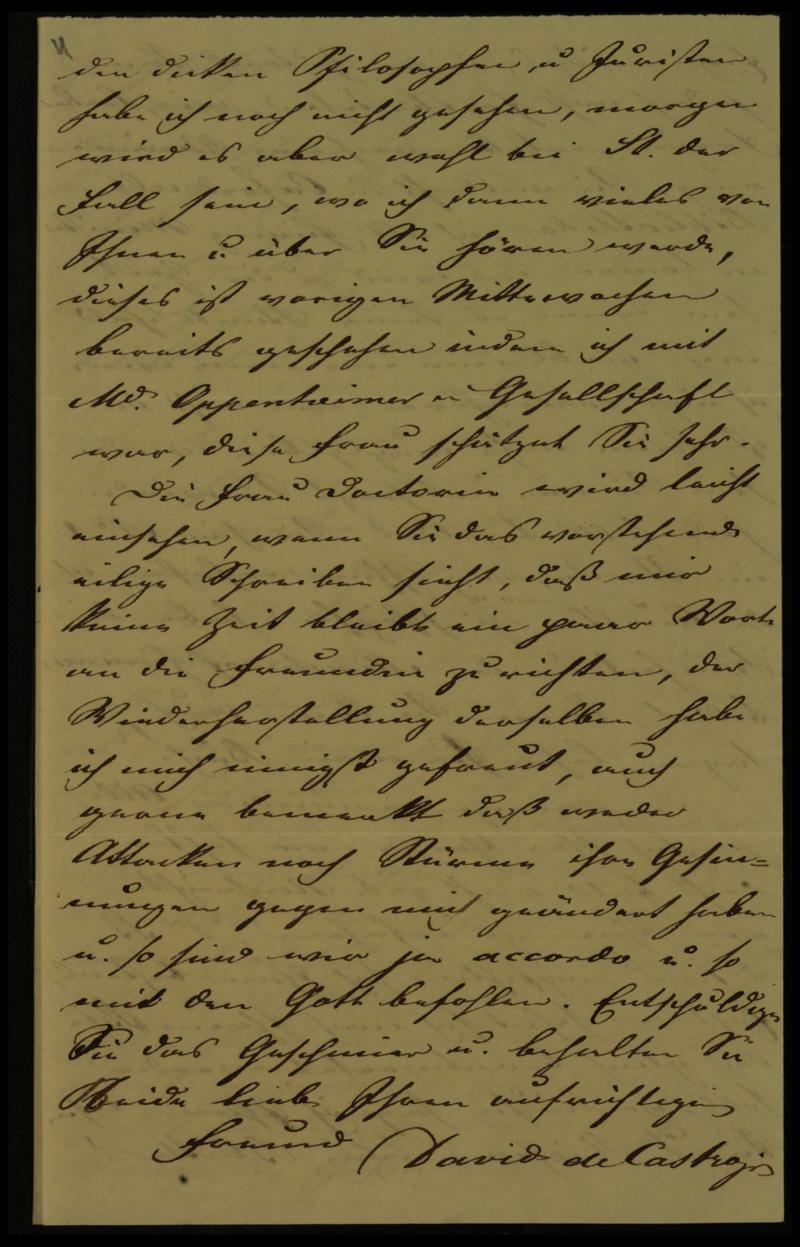 4
den dicken Philosophen u Juristen
habe ich noch nicht gesehen, morgen
wird es aber wohl bei St. der
Fall sein, wo ich dann vieles von
Ihnen u über Sie hören werde,
dieses ist vorigen Mittewochen
bereits geschehen indem ich mit
Md. Oppenheimer in Gesellschaft
war, diese Frau schätzet Sie sehr.
Die Frau Doctorin wird leicht
einsehen, wenn Sie das vorstehende
eilige Schreiben sieht, daß mir
keine Zeit bleibt ein paar Worte
an die Freundin zu richten, der
Wiederherstellung derselben habe
ich mich innigst gefreut, auch
gerne bemerkt daß weder
Attacken noch Stürme ihre Gesin=
nungen gegen mich geändert haben
u. so sind wir ja accordo u. so
mit den Gott befohlen. Entschuldigen
Sie das Geschmier u. behalten Sie
Beide lieb Ihren aufrichtigen
Freund David de Castro jr